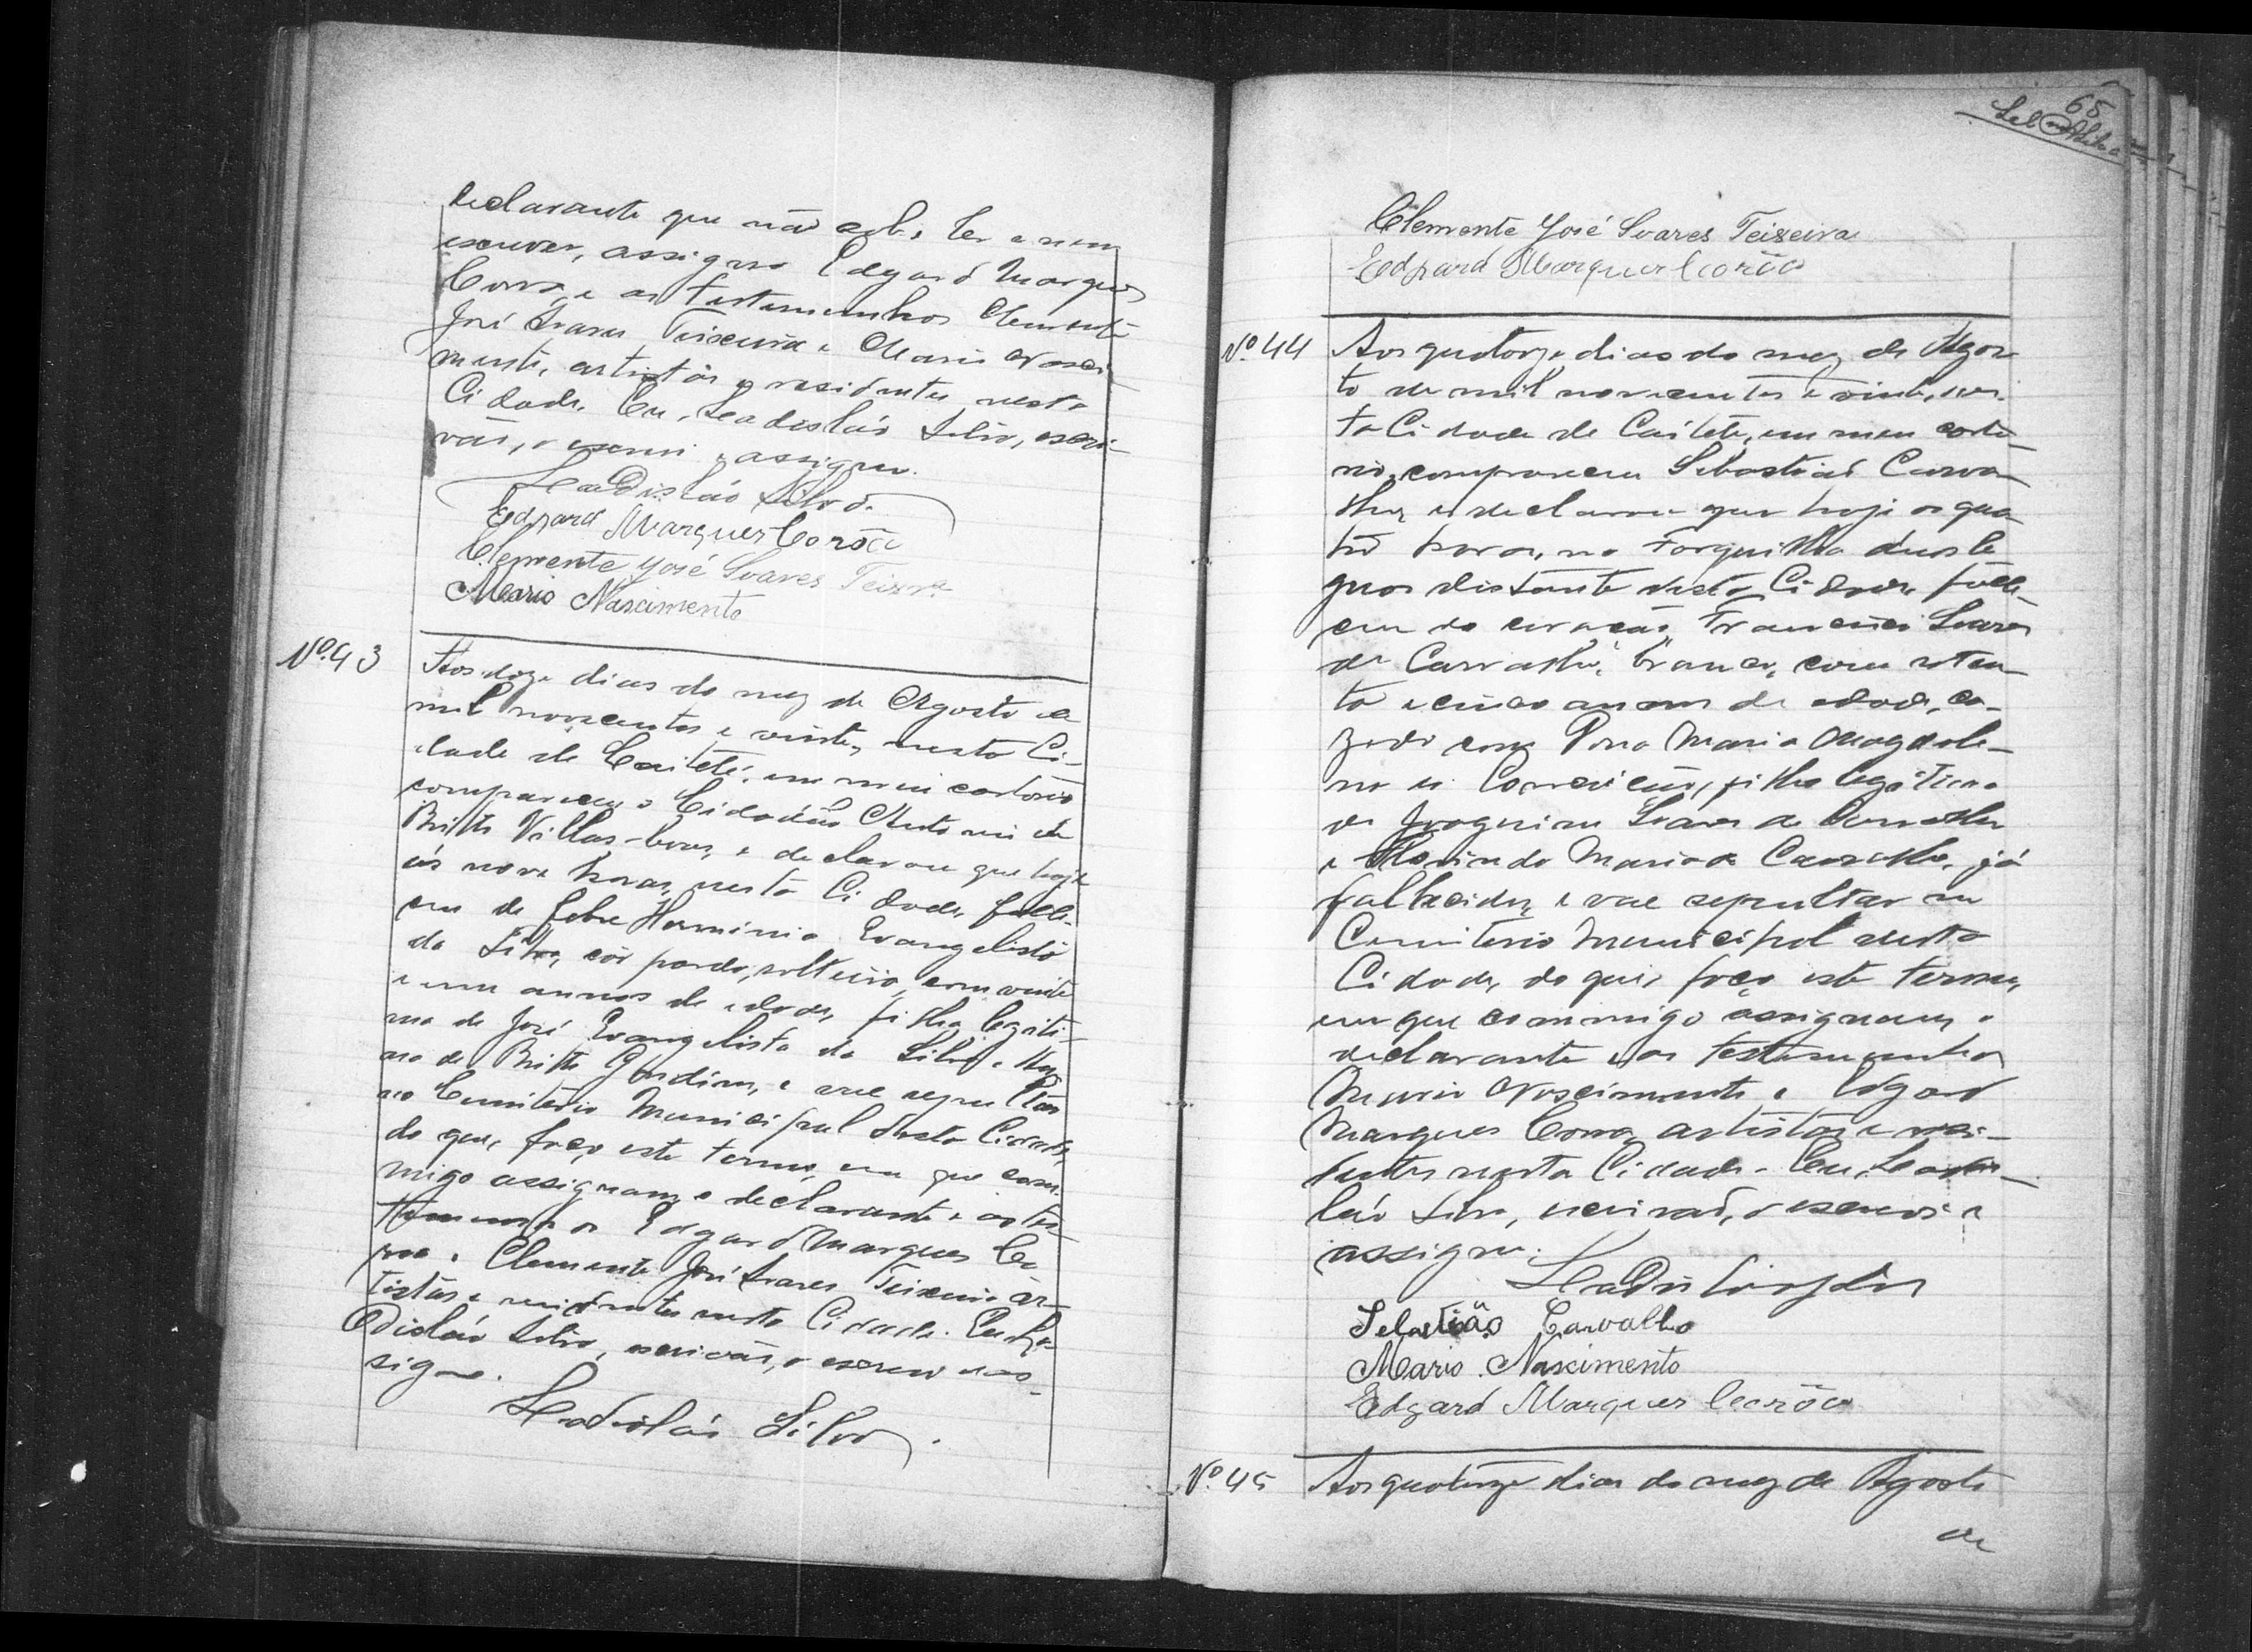 declarante que não sabe ler e nem
escrever, assigna Edgard Marques
Coroa e as testemunhas Clemente
José Soares Teixeira e Mario Nasci-
mento, artistas e residentes nesta
Cidade. Eu, Ladisláo Silva, escri-
vão, o escrevi e assigno.
Ladisláo Silva.
Edgard Marques Corôa
Clemente José Soares Teixeira
Mario Nascimento
Nº 43 Aos doze dias do mez de Agosto de
mil novecentos e vinte, nesta Ci-
dade de Caiteté, em meu cartorio
compareceu o Cidadão Antonio de
Britto Villas-boas, e declarou que hoje
ás nove horas, nesta Cidade, falle-
ceu de febre Herminio Evangelista
da Silva, côr parda, solteiro, com vinte
e um annos de edade, filho legiti-
mo de José Evangelista da Silva e
de Britto Gondim, e vae sepultar
no Cemiterio Municipal desta Cidade,
do que, faço este termo, em que com-
migo assignam o declarante e as tes-
temunhas Edgard Marques Co
roa e Clemente José Soares Teixeira ar-
tistas e residentes nesta Cidade. Eu, La-
disláo Silva, escrivão, o escrevi e as-
signo.
Ladisláo Silva.
65
Clemente José Soares Teixeira
Edgard Marques Corôa
Nº 44 Aos quatorze dias do mez de Agos-
to de mil novecentos e vinte, nes-
ta Cidade de Caiteté, em meu carto-
rio, compareceu Sebastião Carva-
lho, e declarou que hoje as qua-
tro horas, na Forquilha duas le-
guas distante desta Cidade, falle-
ceu do coração Francisco Soares
de Carvalho, branco, com seten-
ta e cinco annos de edade, ca-
zado com Dona Maria Magdale-
na da Conceição, filho legitimo
de Joaquim Soares de Carvalho
e Florinda Maria de Carvalho, já
fallecidos, e vae sepultar no
Cemiterio Municipal desta
Cidade, do que, faço este termo,
em que commigo assignam o
declarante e as testemunhas
Mario Nascimento e Edgard
Marques Coroa, artistas e resi-
dentes nesta Cidade. Eu, Ladis-
láo Silva, escrivão, o escrevi e
assigno.
Ladisláo Silva
Sebastião Carvalho
Mario Nascimento
Edgard Marques Corôa
Nº 45 Aos quatorze dias do mez de Agosto
de